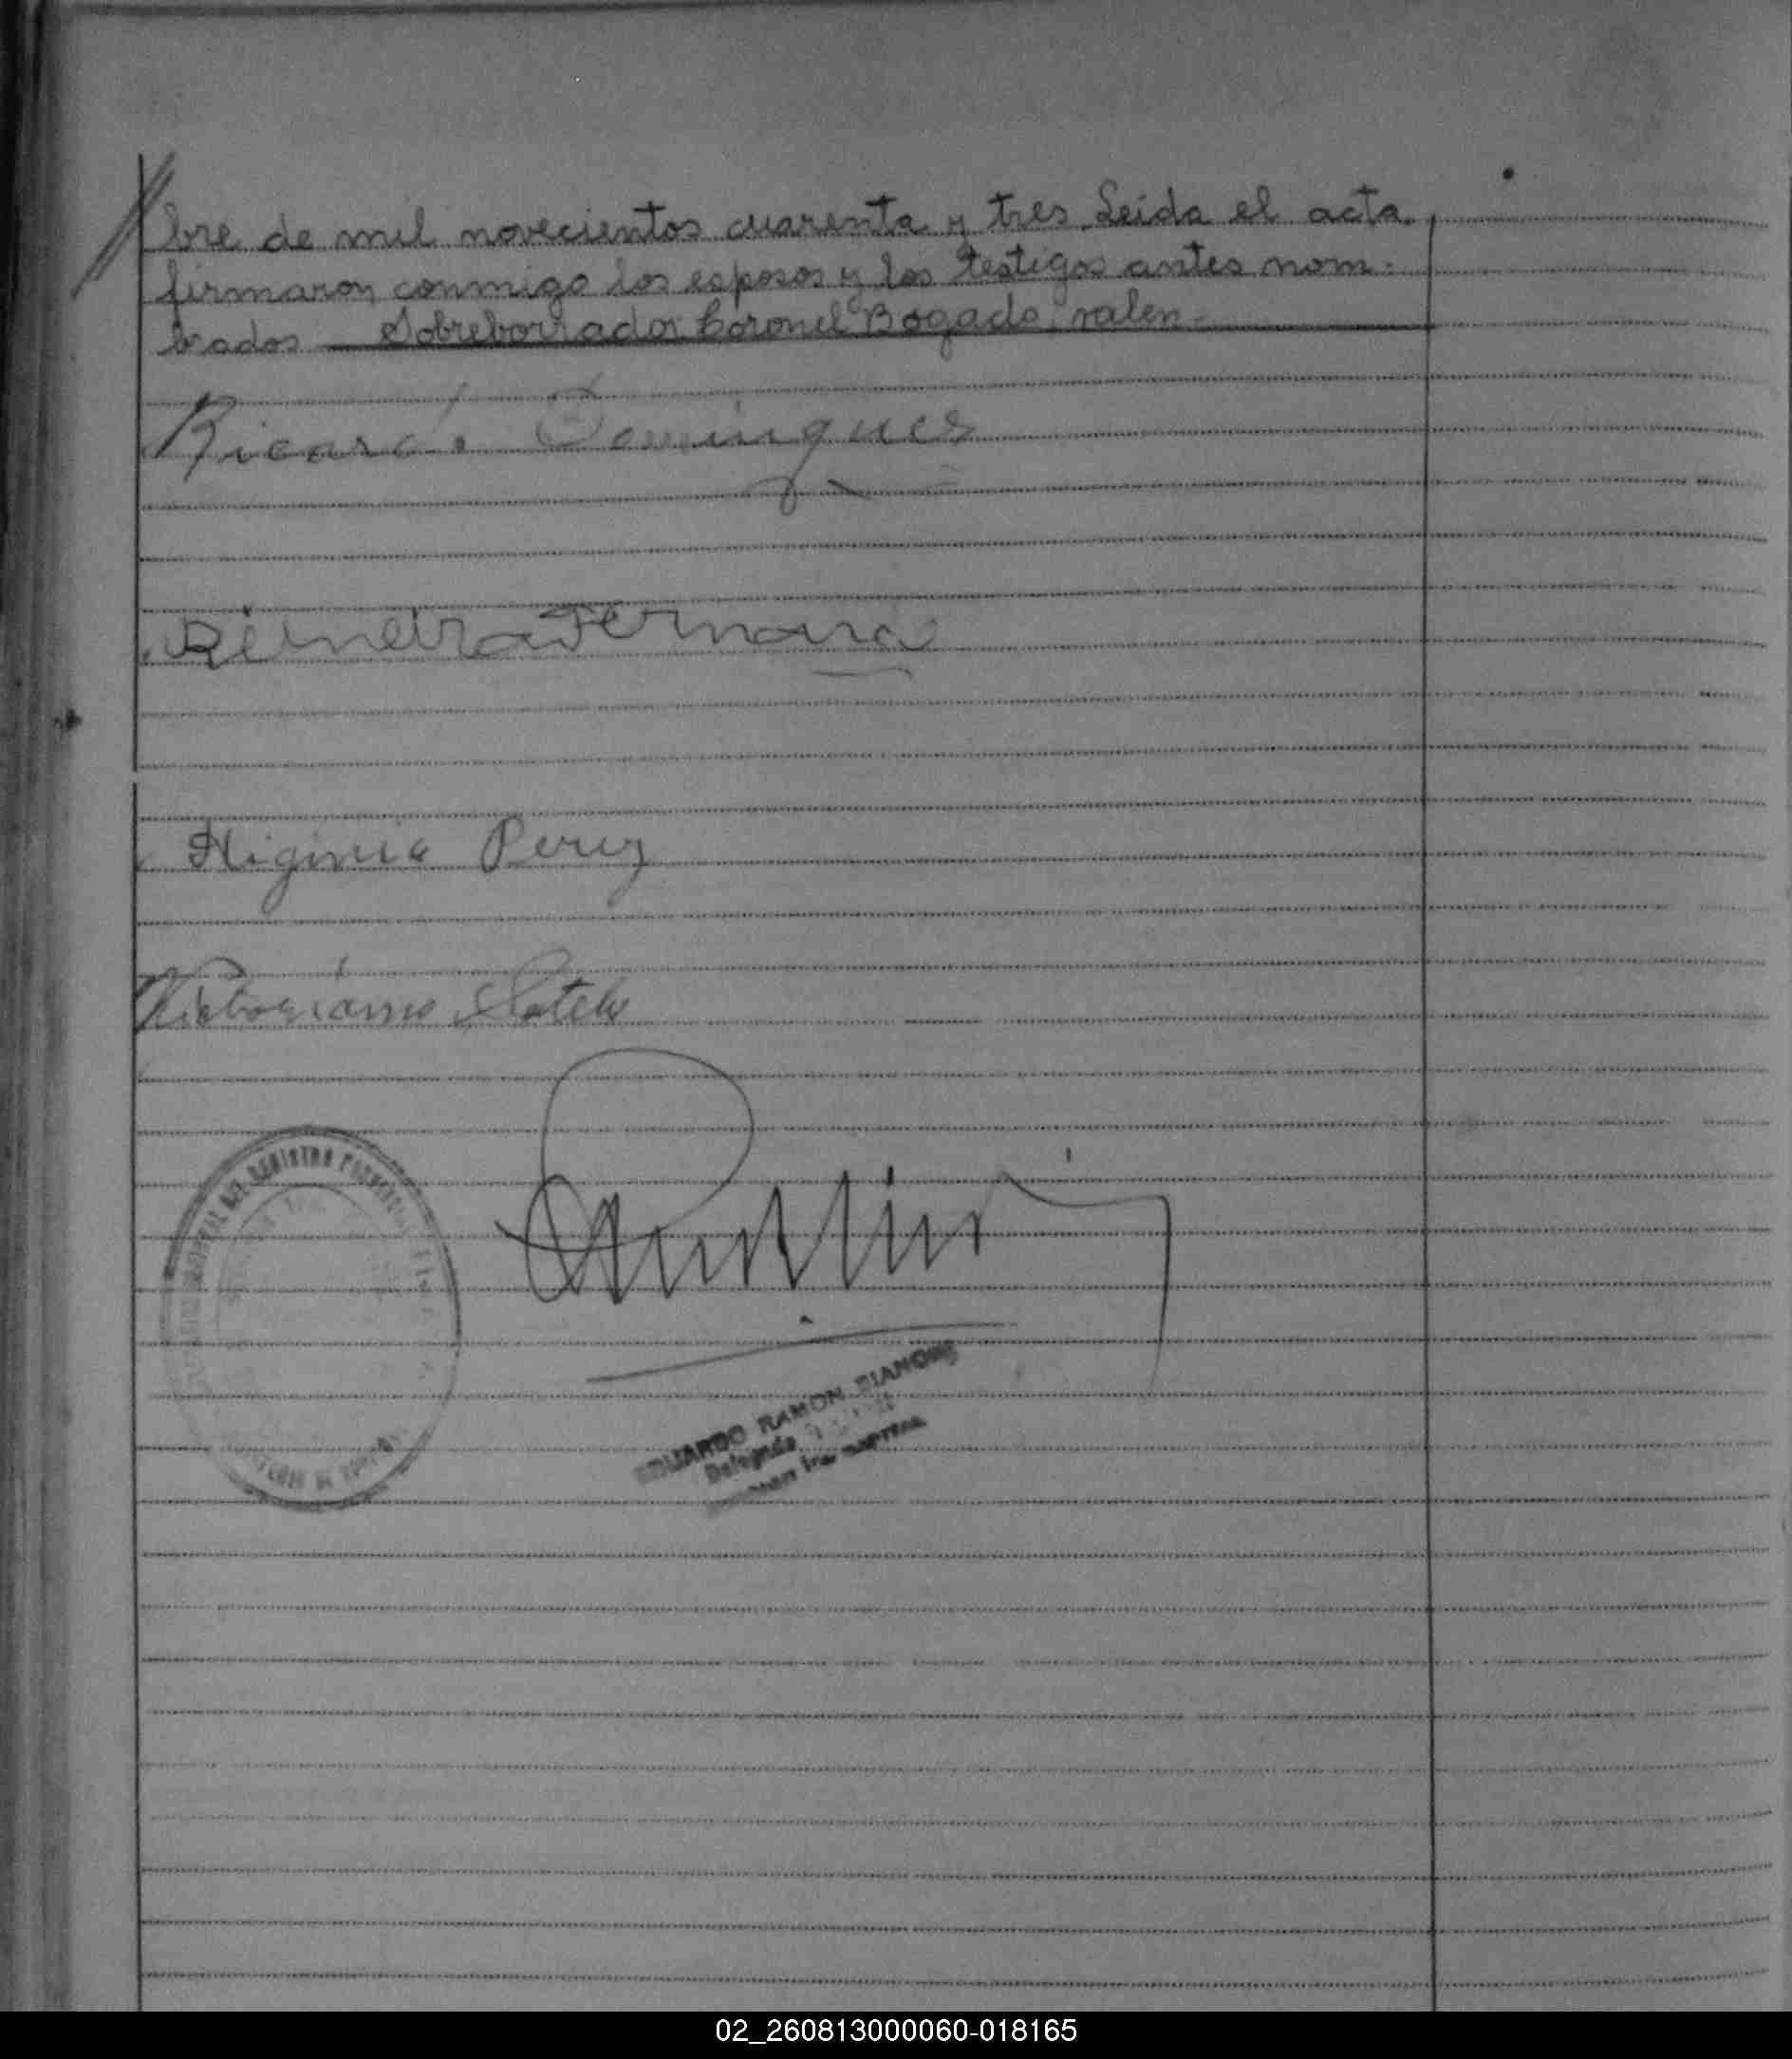 bre de mil novecientos cuarenta y tres. Leida el acta
firmaron conmigo los esposos y los testigos antes nom-
brados Sobreborrados: Coronel Bogado: valen.
Ricardo Domingues
Higinio Perez
Victoriano Sotelo
DEL REGISTRO
EDUARDO RAMON
Delegado
CAPITAL
02_260813000060-018165